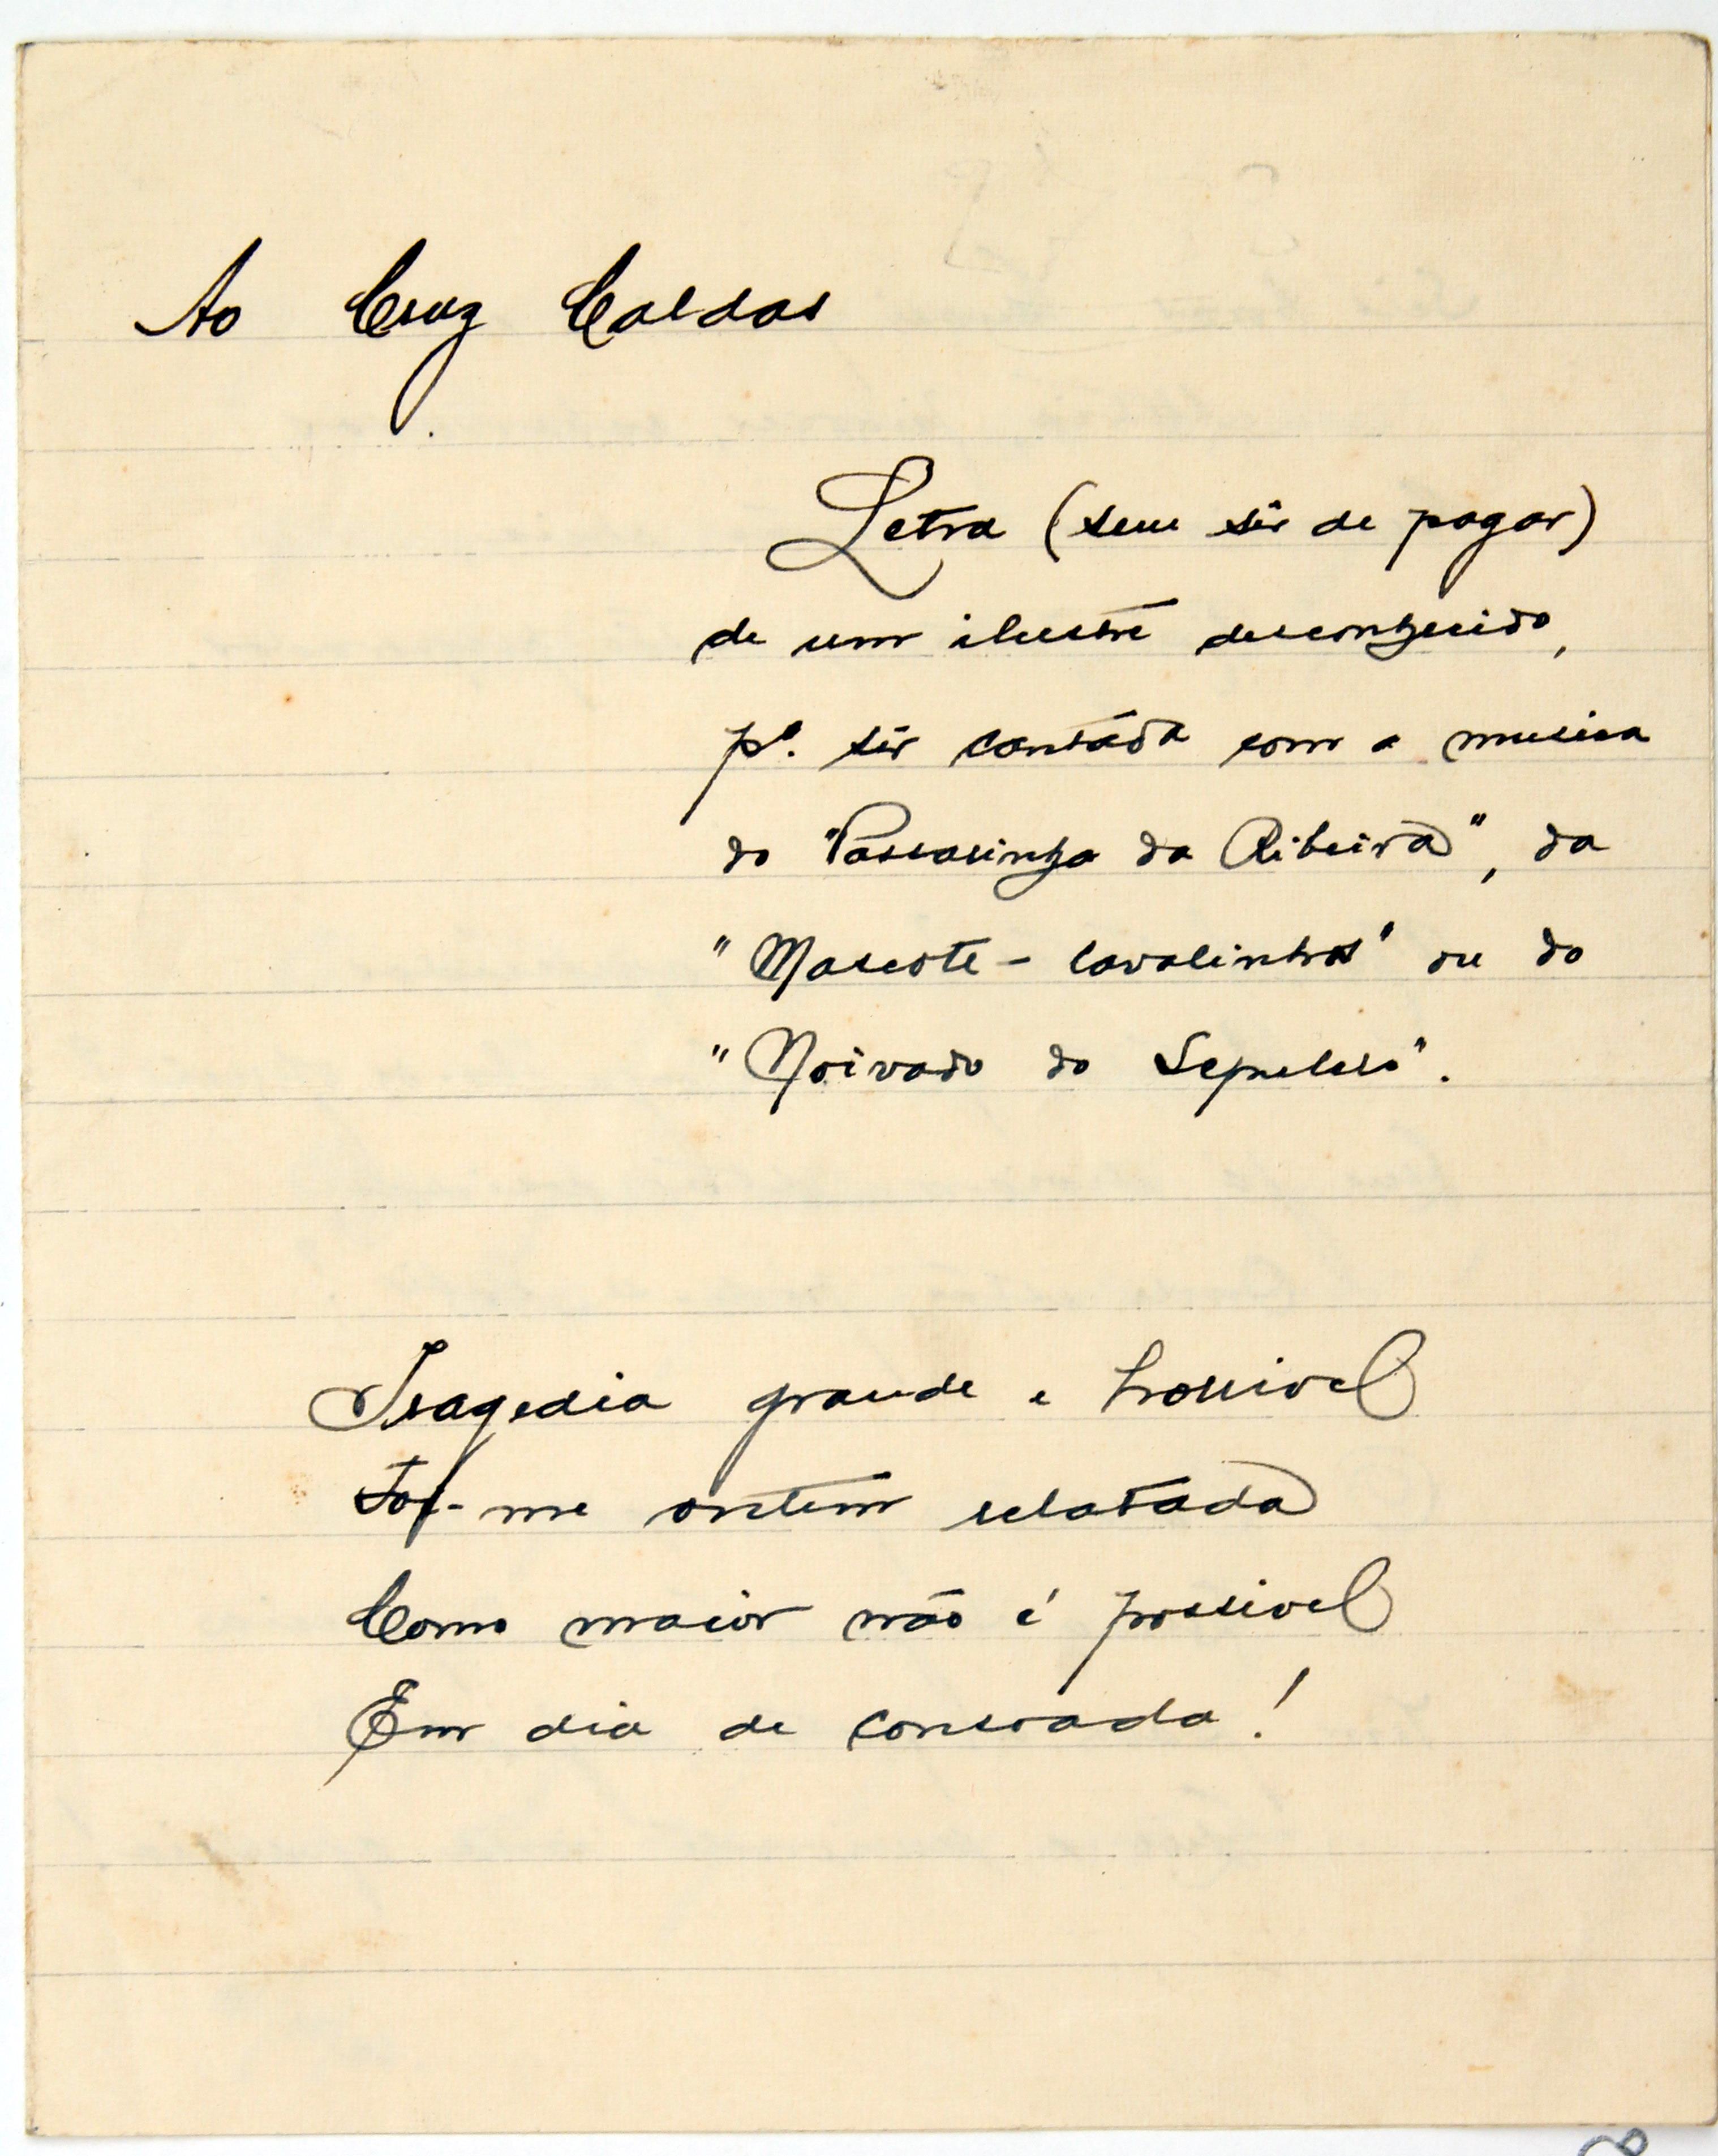 Ao Cruz Caldas
Letra (sem sêr de pagar)
de um ilustre desconhecido,
pª. sêr cantáda com a musica
do "Passarinho da Ribeira", da
"Mascote - Cavalinhos" ou do
"Noivado do Sepulcro".
Tragedia grande e horrivel
Foi-me ontem relatada
Como maior não é possivel
Em dia de consoada!